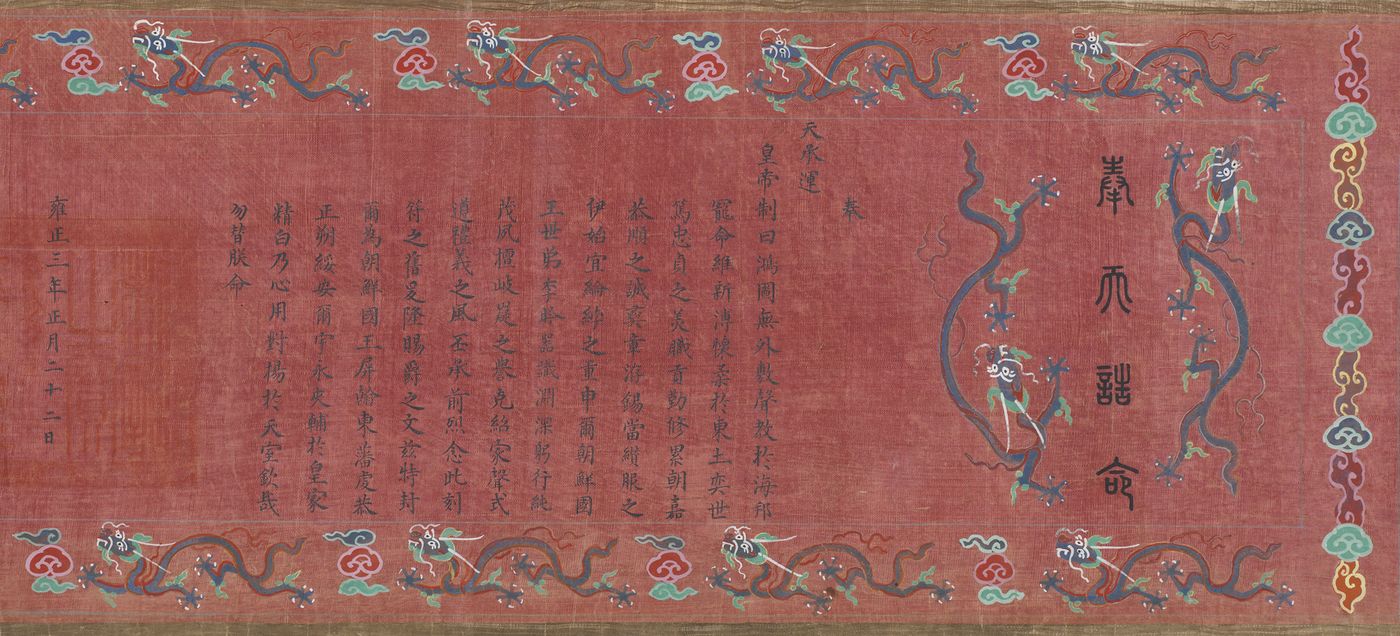 奉天誥命
奉
天承運
皇帝制曰鴻圖無外敷聲教於海邦
寵命維新溥懷柔於東土奕世
篤忠貞之美職貢勤修累朝嘉
恭順之誠彛章洊錫當纘服之
伊始宜綸綍之重申爾朝鮮國
王世弟李昑器識淵深躬行純
茂夙擅岐嶷之譽克紹家聲式
遵禮義之風丕承前烈念此刻
符之舊是隆賜爵之文茲特封
爾為朝鮮國王屏翰東藩虔恭
正朔綏安爾宇永夾輔於皇家
精白乃心用對揚於天室欽哉
勿替朕命
雍正三年正月二十二日